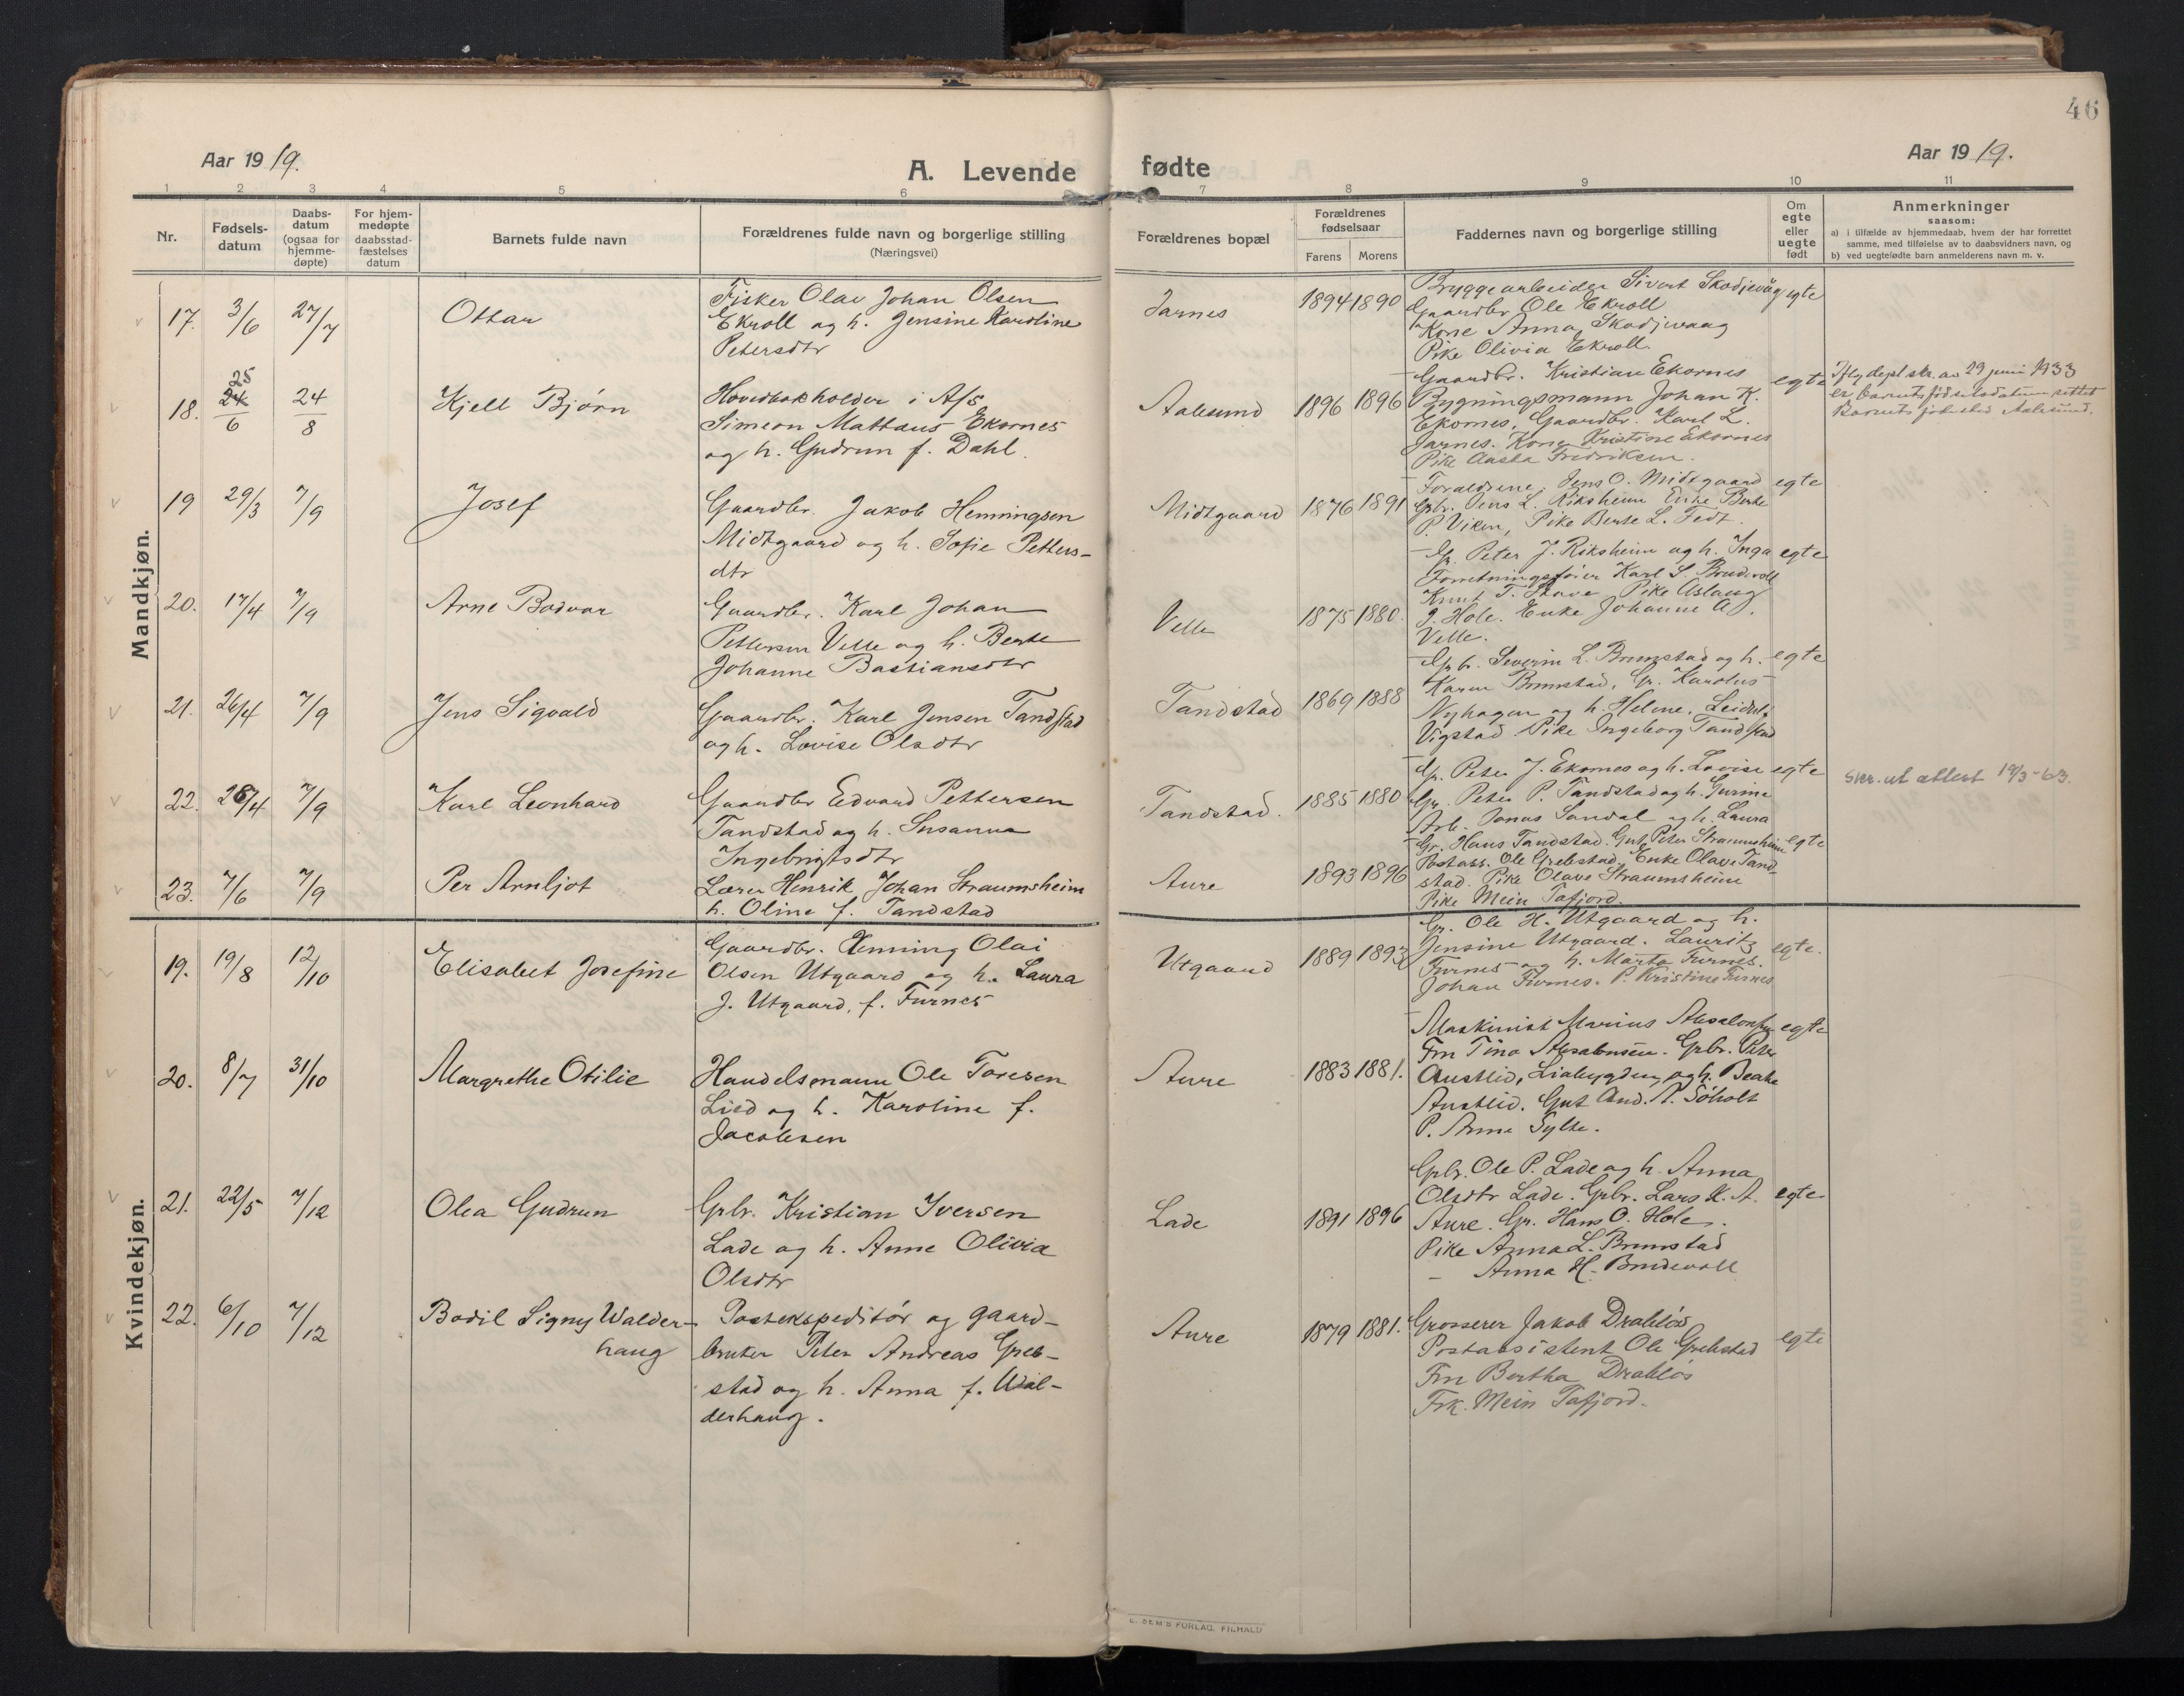 46
Aar 1919.
A. Levende fødte
Aar 1919.
1 2 3 4 5 6 7 8 9 10 11
Nr.
Fødsels-
datum
Daabs-
datum
(ogsaa for
hjemme-
døpte)
For hjem-
medøpte
daabsstad-
fæstelses
datum
Barnets fulde navn
Forældrenes fulde navn og borgerlige stilling
(Næringsvei)
Forældrenes bopæl
Forældrenes
fødselsaar
Farens Morens
Faddernes navn og borgerlige stilling
Om
egte
eller
uegte
født
Anmerkninger
saasom:
a) i tilfælde av hjemmedaab, hvem der har forrettet
samme, med tilføielse av to daabsvidners navn, og
b) ved uegtefødte barn anmelderens navn m. v.
Mandkjøn.
17. 3/6 27/7 Ottar
Fisker Olav Johan Olsen
Ekroll og h. Jensine Karoline
Petersdtr
Jarnes 1894 1890
Bryggearbeider Sivert Skodjevåg egte
Gaardbr Ole Ekroll
Kone Anna Skodjevaag
Pike Olivia Ekroll.
18. 25 24/6 24/8 Kjell Bjørn
Hovedbokholder i A/S
Simeon Mattæus Ekornes
og h. Gudrun f. Dahl.
Aalesund 1896 1896
Gaardbr. Kristian Ekornes egte
Bygningsmann Johan K.
Ekornes, Gaardbr. Karl L.
Jarnes. Kone Kristine Ekornes
Pike Aasta Fredriksen.
Iflg depl skr. av 29 juni 1933
er barnets fødselsdatum rettet
Barnets fødested Aalesund.
19 29/3 7/9 Josef
Gaardbr. Jakob Henningsen
Midtgaard og h. Sofie Petters-
dtr
Midtgaard 1876 1891
Forældrene, Jens O. Midtgaard egte
Gbr. Jens L. Riksheim Enke Berte
P. Viken, Pike Berte L. Fedt.
20. 17/4 7/9 Arne Bodvar
Gaardbr. Karl Johan
Pettersen Velle og h. Berte
Johanne Bastiansdtr
Velle 1875 1880.
Gr. Peter J. Riksheim og h. Inga egte
Forretningsfører Karl S. Brudevoll
Knut T. Pike Aslaug
J. Hole. Enke Johanne A.
Velle.
21. 26/4 7/9 Jens Sigvald
Gaardbr. Karl Jensen Tandstad
og h. Lovise Olsdtr
Tandstad 1869 1888
Gbr. Severin L. Brunstad og h. egte
Karen Brunstad, Gr. Karolus
Nyhagen og h. Helene,
Vigstad. Pike Ingeborg Tandstad
22. 28/4 7/9 Karl Leonhard
Gaardbr Edvard Pettersen
Tandstad og h. Susanna
Ingebrigtsdtr
Tandstad. 1885 1880
Gr. Peter J. Ekornes og h. Lovise egte
Gr. Peter P. Tandstad og h. Gurine
Arb. Jonas Sandal og h. Laura
skr. ut attest 19/3-63.
23. 7/6 7/9 Per Arnljot
Lærer Henrik Johan Straumsheim
h. Oline f. Tandstad
Aure 1893 1896
Gr. Hans Tandstad. Gut Peter Straumsheim egte
Postass. Ole Grebstad. Enke Olave Tand-
stad. Pike Olave Straumsheim
Pike Mein Tafjord.
Kvindekjøn.
19. 19/8 12/10 Elisabet Josefine
Gaardbr. Henning Olai
Olsen Utgaard og h. Laura
J. Utgaard, f. Furnes
Utgaard 1889 1893
Gr. Ole H. Utgaard og h.
Jensine Utgaard. Lauritz egte.
Furnes og h. Marta Furnes.
Johan Furnes. P. Kristine Furnes
20. 8/7 31/10 Margrethe Otilie
Handelsmann Ole Toresen
Lied og h. Karoline f.
Jacobsen
Aure 1883 1881.
Maskinist Marius Absalonsen egte
Fru Tina Absalonsen. Grbr. Peter
Austlid, Liabygden, og h. Beate
Austlid. Gut And. A. Søholt
P. Anna Sylte.
21. 22/5 7/12 Olea Gudrun
Grbr. Kristian Iversen
Lade og h. Anne Olivia
Olsdtr
Lade 1891 1896
Grbr. Ole P. Lade og h. Anna
Olsdtr Lade. Grbr. Lars K. A. egte
Aure. Gr. Hans O. Hole.
Pike Anna L. Brunstad
— Anna H. Brudevoll
22. 6/10 7/12 Bodil Signy Walder-
haug
Postekspeditør og gaard-
bruker Peter Andreas Greb-
stad og h. Anna f. Wal-
derhaug.
Aure 1879 1881.
Grosserer Jakob Drabløs
Postassistent Ole Grebstad egte
Fru Bertha Drabløs
Frk. Mein Tafjord.
E. SEM'S FORLAG, FR.HALD